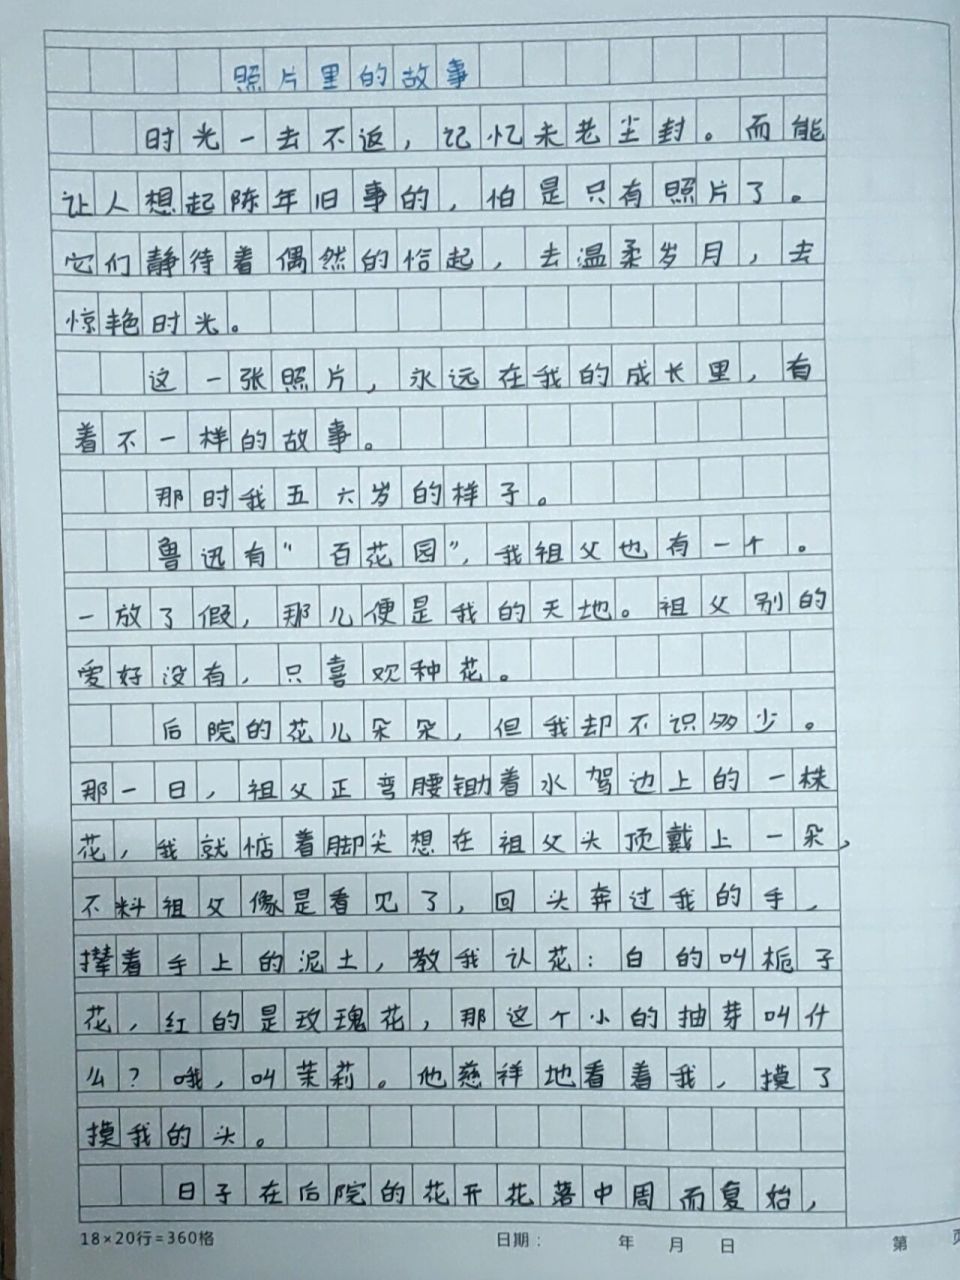 照片里的故事
时光一去不返，记忆未老尘封。而能
让人想起陈年旧事的，怕是只有照片了。
它们静待着偶然的恰起，去温柔岁月，去
惊艳时光。
这一张照片，永远在我的成长里，有
着不一样的故事。
那时我五六岁的样子。
鲁迅有“百花园”，我祖父也有一个。
一放了假，那儿便是我的天地。祖父别的
爱好没有，只喜欢种花。
后院的花儿朵朵，但我却不识多少。
那一日，祖父正弯腰锄着水驾边上的一株
花，我就惦着脚尖想在祖父头顶戴上一朵，
不料祖父像是看见了，回头奔过我的手，
撵着手上的泥土，教我认花：白的叫栀子
花，红的是玫瑰花，那这个小的抽芽叫什
么？哦，叫茉莉。他慈祥地看着我，摸了
摸我的头。
日子在后院的花开花落中周而复始，
18×20行=360格
日期： 年 月 日
第 页